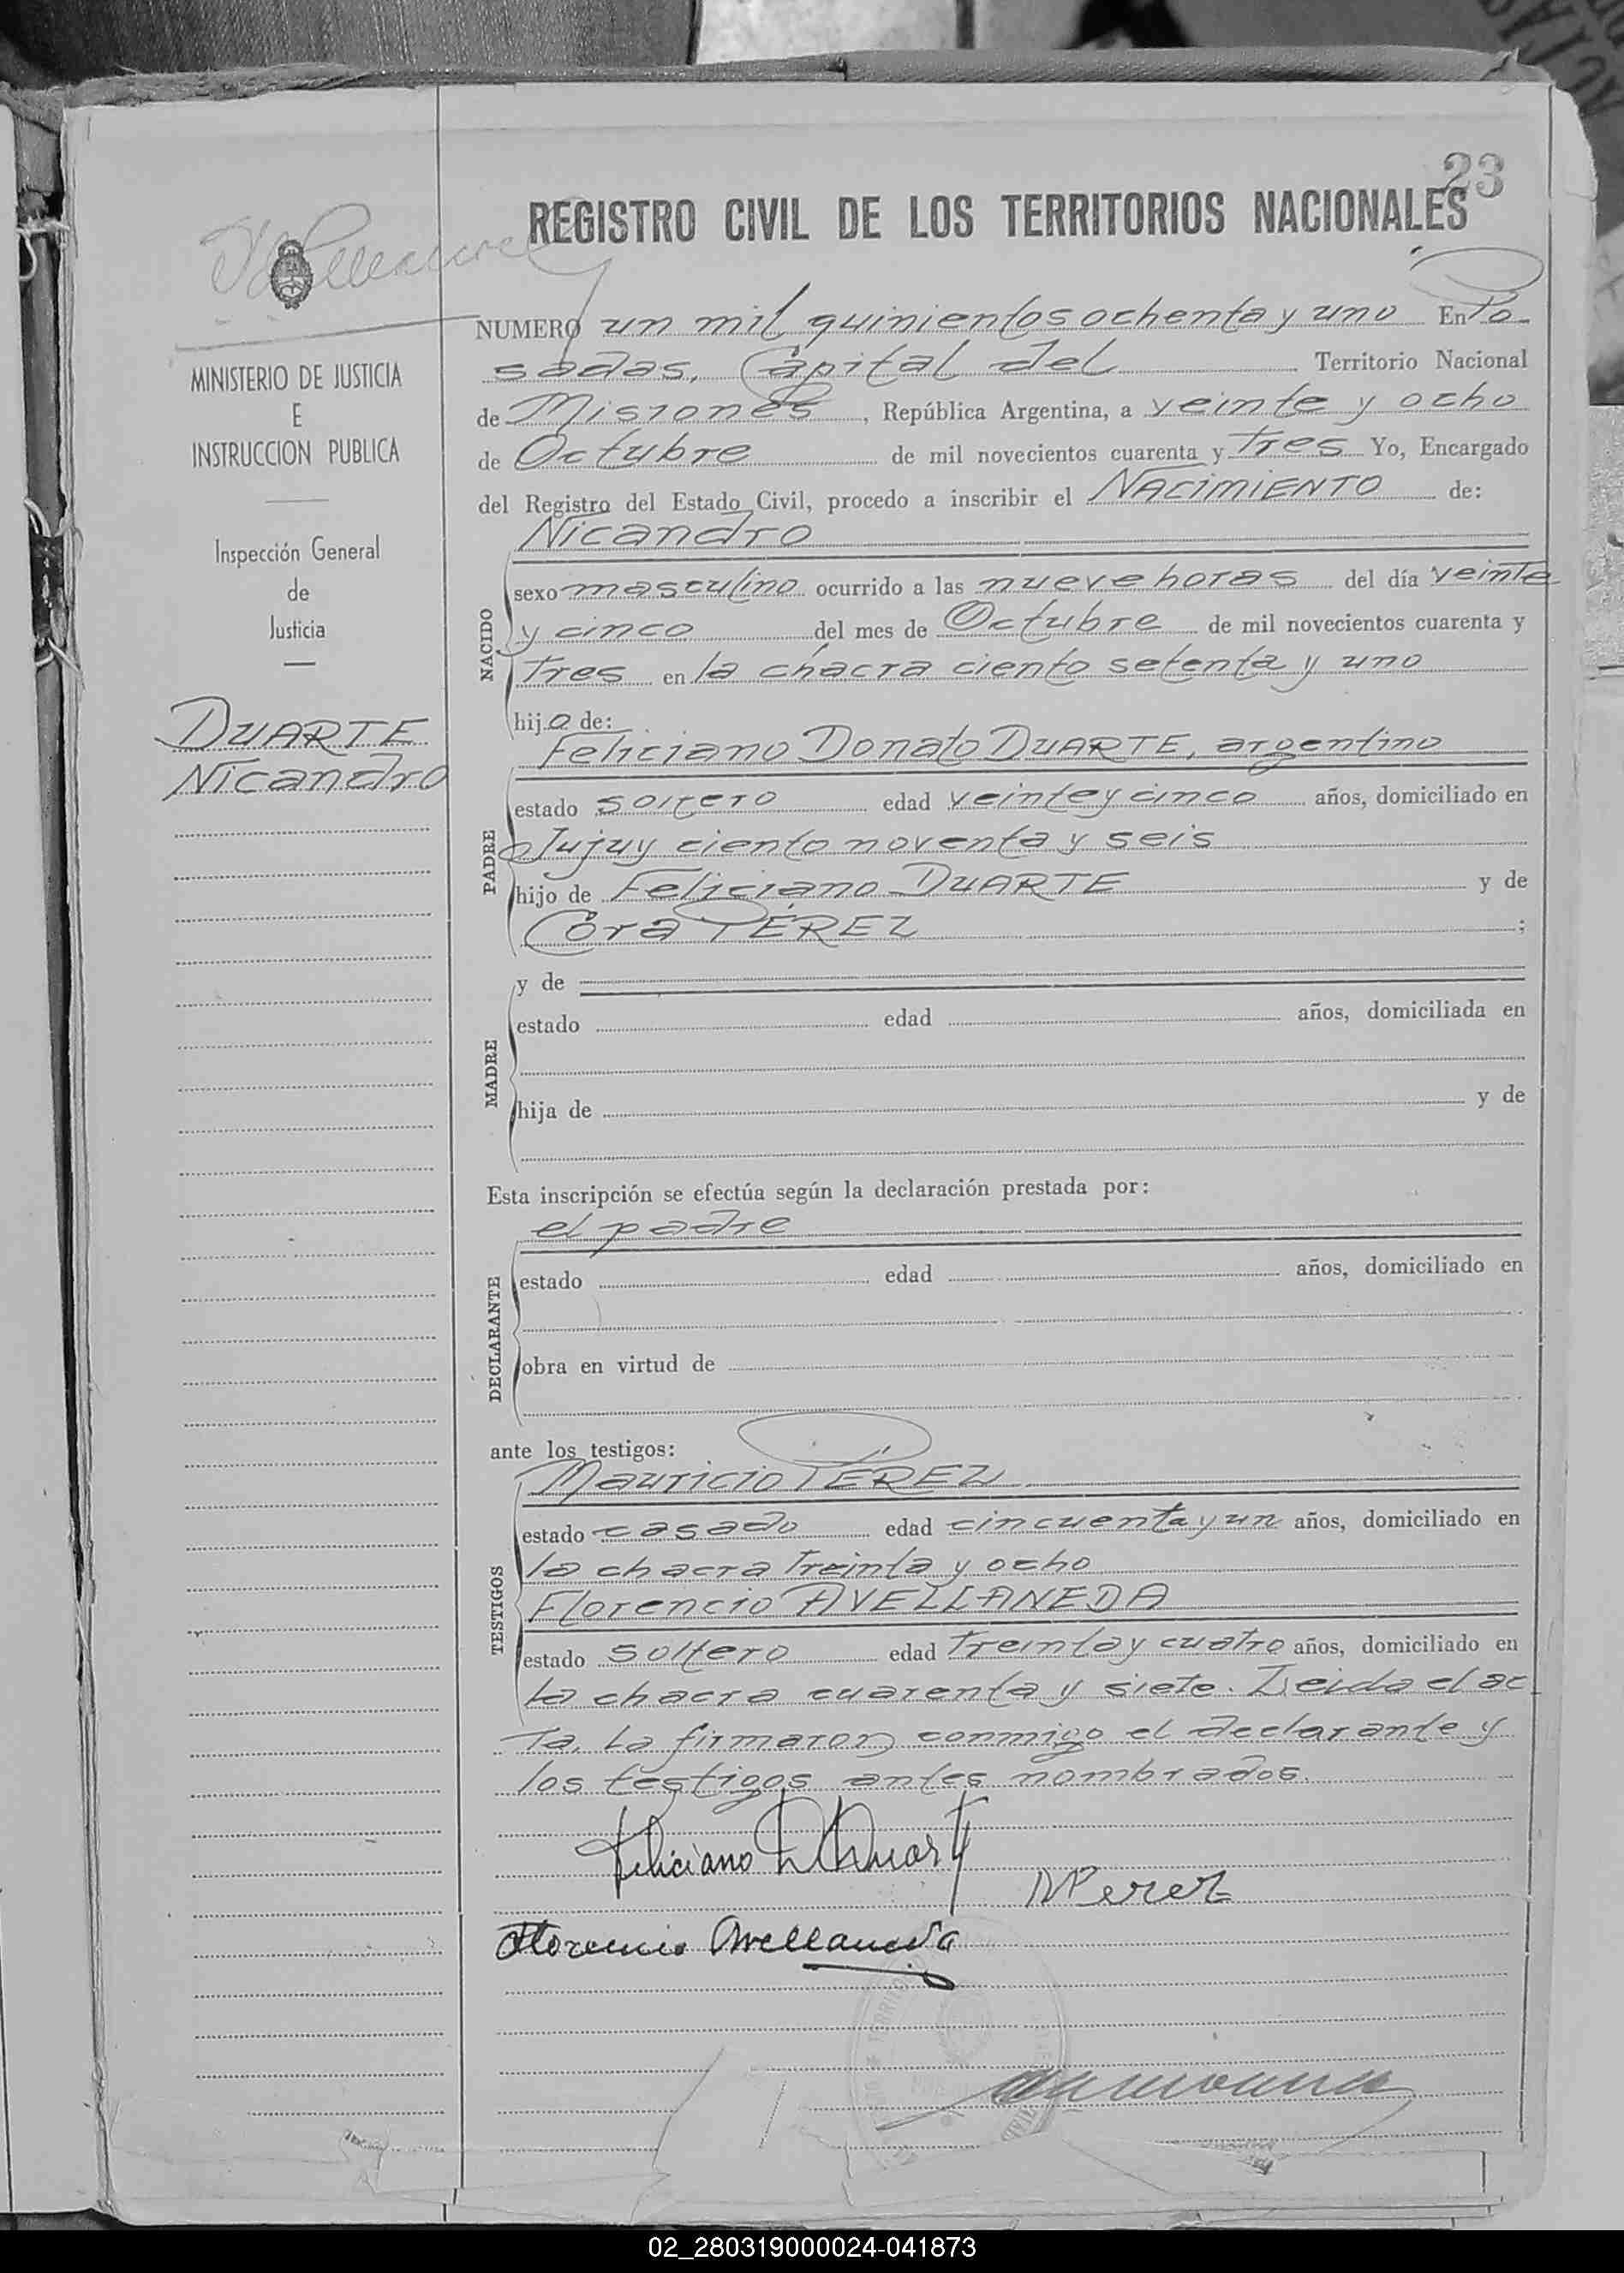 23
REGISTRO CIVIL DE LOS TERRITORIOS NACIONALES
MINISTERIO DE JUSTICIA
E
INSTRUCCION PUBLICA
Inspección General
de
Justicia
DUARTE
Nicandro
NUMERO un mil quinientos ochenta y uno En Po-
sadas, Capital del Territorio Nacional
de Misiones, República Argentina, a veinte y ocho
de Octubre de mil novecientos cuarenta y tres Yo, Encargado
del Registro del Estado Civil, procedo a inscribir el NACIMIENTO de:
Nicandro
NACIDO
sexo masculino ocurrido a las nueve horas del día veinte
y cinco del mes de Octubre de mil novecientos cuarenta y
tres en la chacra ciento setenta y uno
hijo de:
Feliciano Donato DUARTE, argentino
PADRE
estado soltero edad veinte y cinco años, domiciliado en
Jujuy ciento noventa y seis
hijo de Feliciano DUARTE y de
Cora PÉREZ ;
y de
MADRE
estado edad años, domiciliada en
hija de y de
Esta inscripción se efectúa según la declaración prestada por:
el padre
DECLARANTE
estado edad años, domiciliado en
obra en virtud de
ante los testigos:
Mauricio PÉREZ
TESTIGOS
estado casado edad cincuenta y un años, domiciliado en
la chacra treinta y ocho
Florencio AVELLANEDA
estado soltero edad treinta y cuatro años, domiciliado en
la chacra cuarenta y siete. Leida el ac
ta, la firmaron conmigo el declarante y
los testigos antes nombrados.
Feliciano D Duarte
M Perez
Florencio Avellaneda
02_280319000024-041873